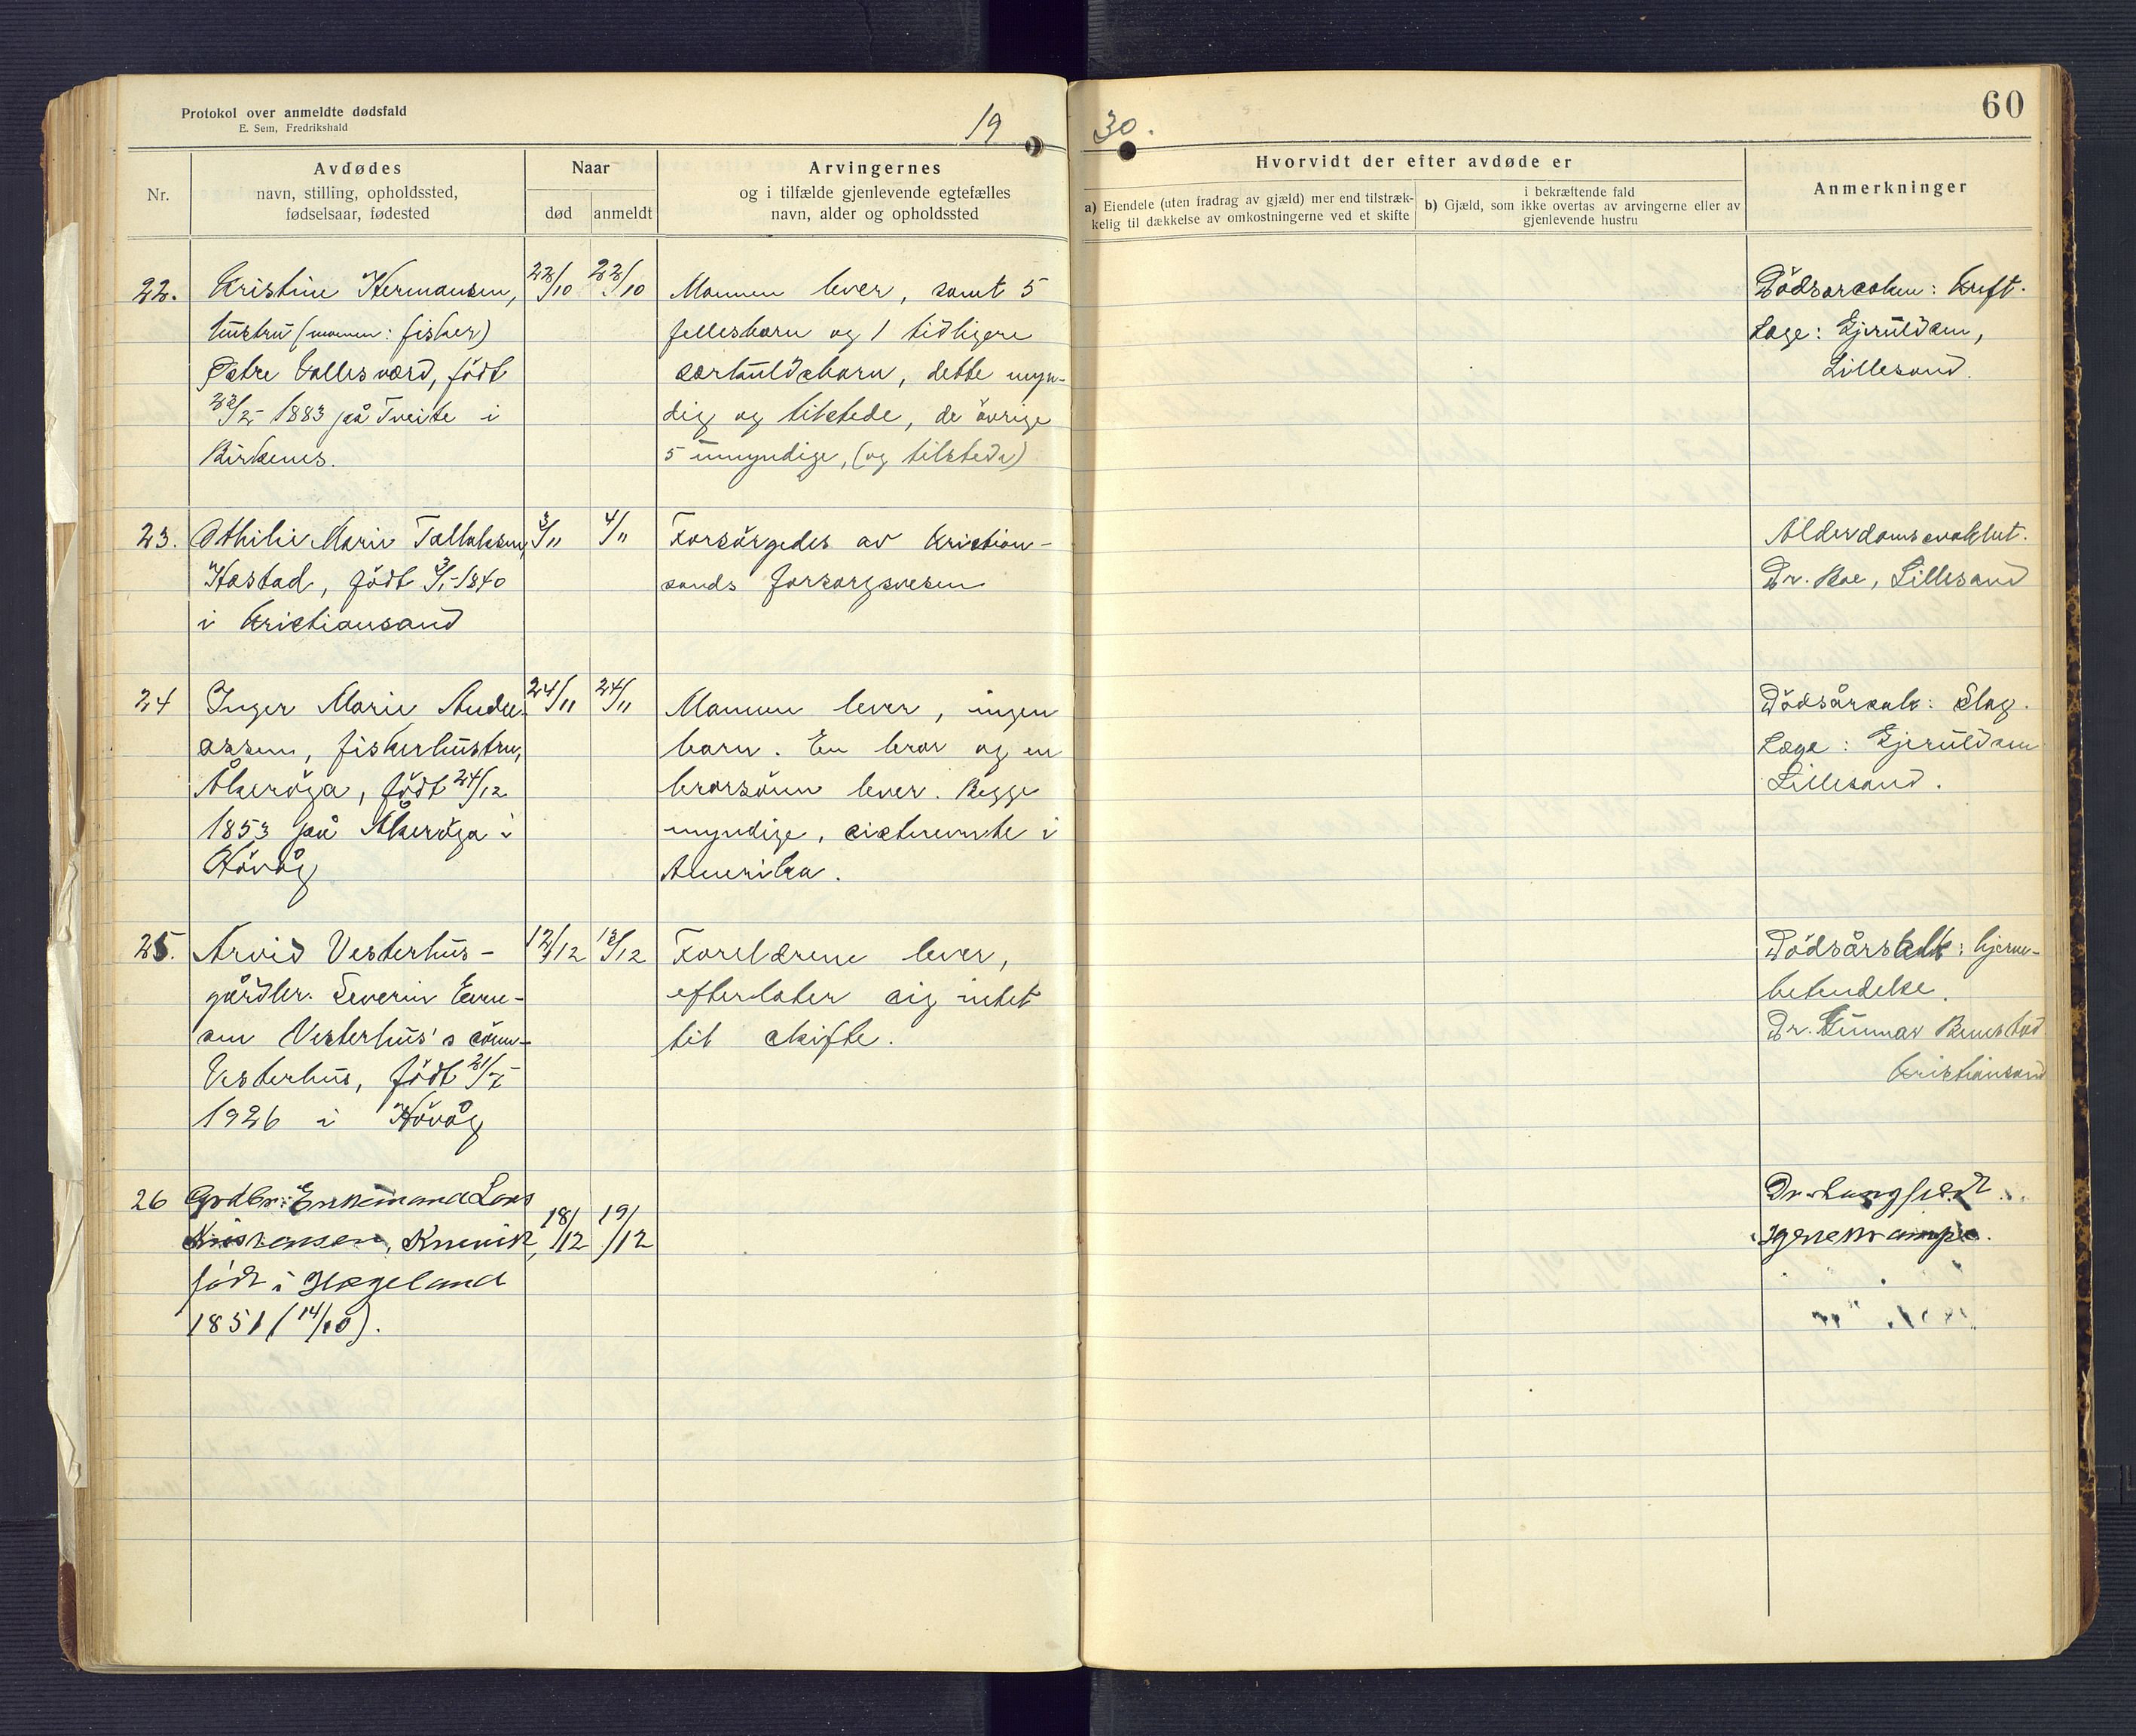 60
Protokol over anmeldte dødsfald
E. Sem, Fredrikshald
19 30.
Nr.
Avdødes
navn, stilling, opholdssted,
fødselsaar, fødested
Naar
død
anmeldt
Arvingernes
og i tilfælde gjenlevende egtefælles
navn, alder og opholdssted
Hvorvidt der efter avdøde er
a) Eiendele (uten fradrag av gjæld) mer end tilstræk-
kelig til dækkelse av omkostningerne ved et skifte
i bekræftende fald
b) Gjæld, som ikke overtas av arvingerne eller av
gjenlevende hustru
Anmerkninger
22.
Kristine Hermansen,
hustru (mannen: fisker)
Østre Vallesverd, födt
1883 på Tveite i
Birkenes.
23/10
23/10
Mannen lever, samt 5
fellesbarn og 1 tidligere
særkuldsbarn, dette myn-
dig og tilstede, de övrige
5 umyndige, (og tilstede)
Dödsorsaken: Kreft.
Læge: Gjeruldsen,
Lillesand.
23.
Othilie Marie Tallaksen,
Hæstad, födt 3/1-1840
i Kristiansand
3/11
4/11
Forsörgedes av Kristian-
sands forsorgsvesen
Alderdomsavaklet.
Dr. Boe, Lillesand
24
Inger Marie Andre-
assen, fiskerhustru,
Åkeröya, födt 24/12
1853 på Åkeröya i
Hövåg
24/11
24/11
Mannen lever, ingen
barn. En bror og en
brorsönn lever. Begge
myndige, sistnevnte i
Amerika.
Dödsårsak: Slag.
Læge: Gjeruldsen
Lillesand.
25.
Arvid Vesterhus -
gårdbr. Severin Even-
sen Vesterhus's sönn -
Vesterhus, födt
1926 i Hövåg
12/12
13/12
Foreldrene lever,
efterlater sig intet
til skifte.
Dödsårsak: hjerne-
betendelse.
Dr. Gunnar Benestad
Kristiansand
26
Grdbr. Enkemand Lars
Kristensen,
födt i Hægeland
1851 (14/10).
18/12
19/12
Dr. Langfeldt